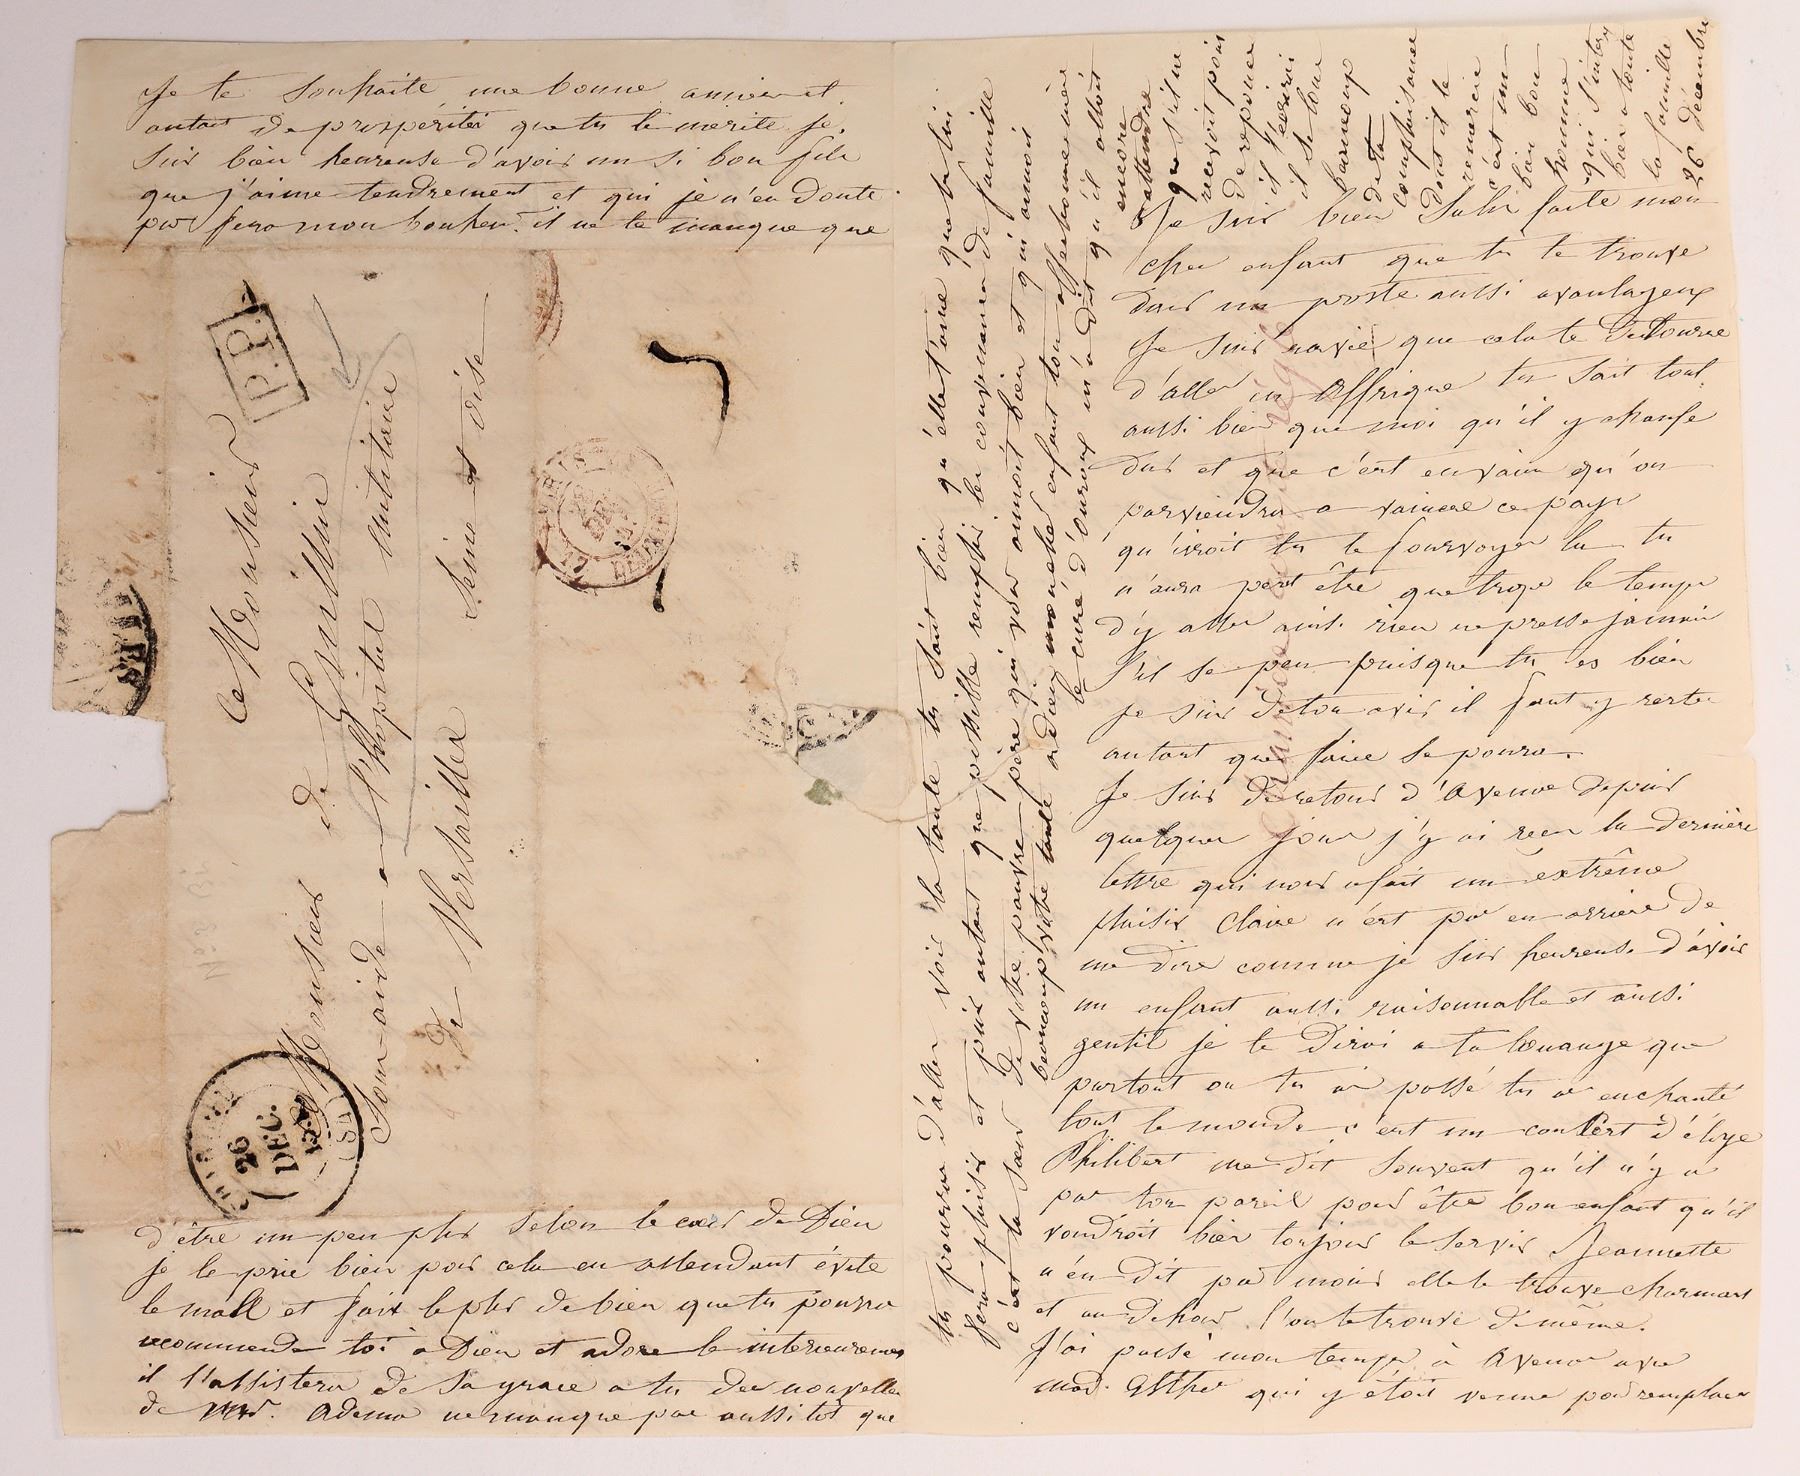 Je suis bien satisfaite mon
cher enfant que tu te trouve
dans un poste aussi avantageux
Je suis ravie que cela te détourne
d'aller en Affrique tu sait tout
aussi bien que moi qu'il y chauffe
dur et que c'est en vain qu'on
parviendra a vaincre ce pays
qu'iroit tu te fourvoyer la tu
n'aura peut être que trop le temps
d'y aller ainsi rien ne presse jamais
s'il se peu puisque tu es bien
je suis de ton avis il faut y rester
autant que faire se poura.
Je suis de retour d'Avenue depuis
quelque jour j'y ai recu ta dernière
lettre qui nous a fait un extrême
plaisir Claire n'est pas en arriere de
me dire comme je suis heureuse d'avoir
un enfant aussi raisonnable et aussi
gentil je te dirai a ta louange que
partout ou tu as passé tu as enchanté
tout le monde c'est un concert d'éloge
Philibert me dit souvent qu'il n'y a
pas ton pareil pour être bon enfant qu'il
voudroit bien toujour te servir Jeannette
n'en dit pas moins elle te trouve charmant
et au dehors l'on te trouve de même.
J'ai passé mon temps à Avenue avec
mad. Esther qui y étoit venue pour remplacer
Je te souhaite une bonne année et
autant de prospérités que tu le merite je
suis bien heureuse d'avoir un si bon fils
que j'aime tendrement et qui je n'en doute
pas fera mon bonheur. il ne te manque que
d'être un peu plus selon le cœur de Dieu
je le prie bien pour cela en attendant évite
le mall et fait le plus de bien que tu pourra
recommende toi a Dieu et adore le interieurement
il t'assistera de sa grace a tu des nouvelles
de Mr. Adema ne manque pas aussitot que
tu pourra d'aller voir ta tante tu sait bien qu'elle t'aime que te lui
fera plaisir et puis autant que possible remplir les convenances de famille
c'est la sœur de votre pauvre père qui vous aimoit bien et qui aimoit
beaucoup votre tante adieu mon cher enfant ton affectionnee mère
le curé d'Ouroux m'a dit qu'il alloit
encore
attendre
que s'il ne
recevoit pas
de reponce
il t'ecrirai
il se loue
beaucoup
de ta
complaisance
dont il te
remercie
c'est un
bien bon
homme
qui s'interesse
bien a toute
la famille
26 décembre
P.P.
a Monsieur
Monsieur de
Sous aide a l'hopital militaire
de Versailles
Seine et oise
26
DEC.
(81)